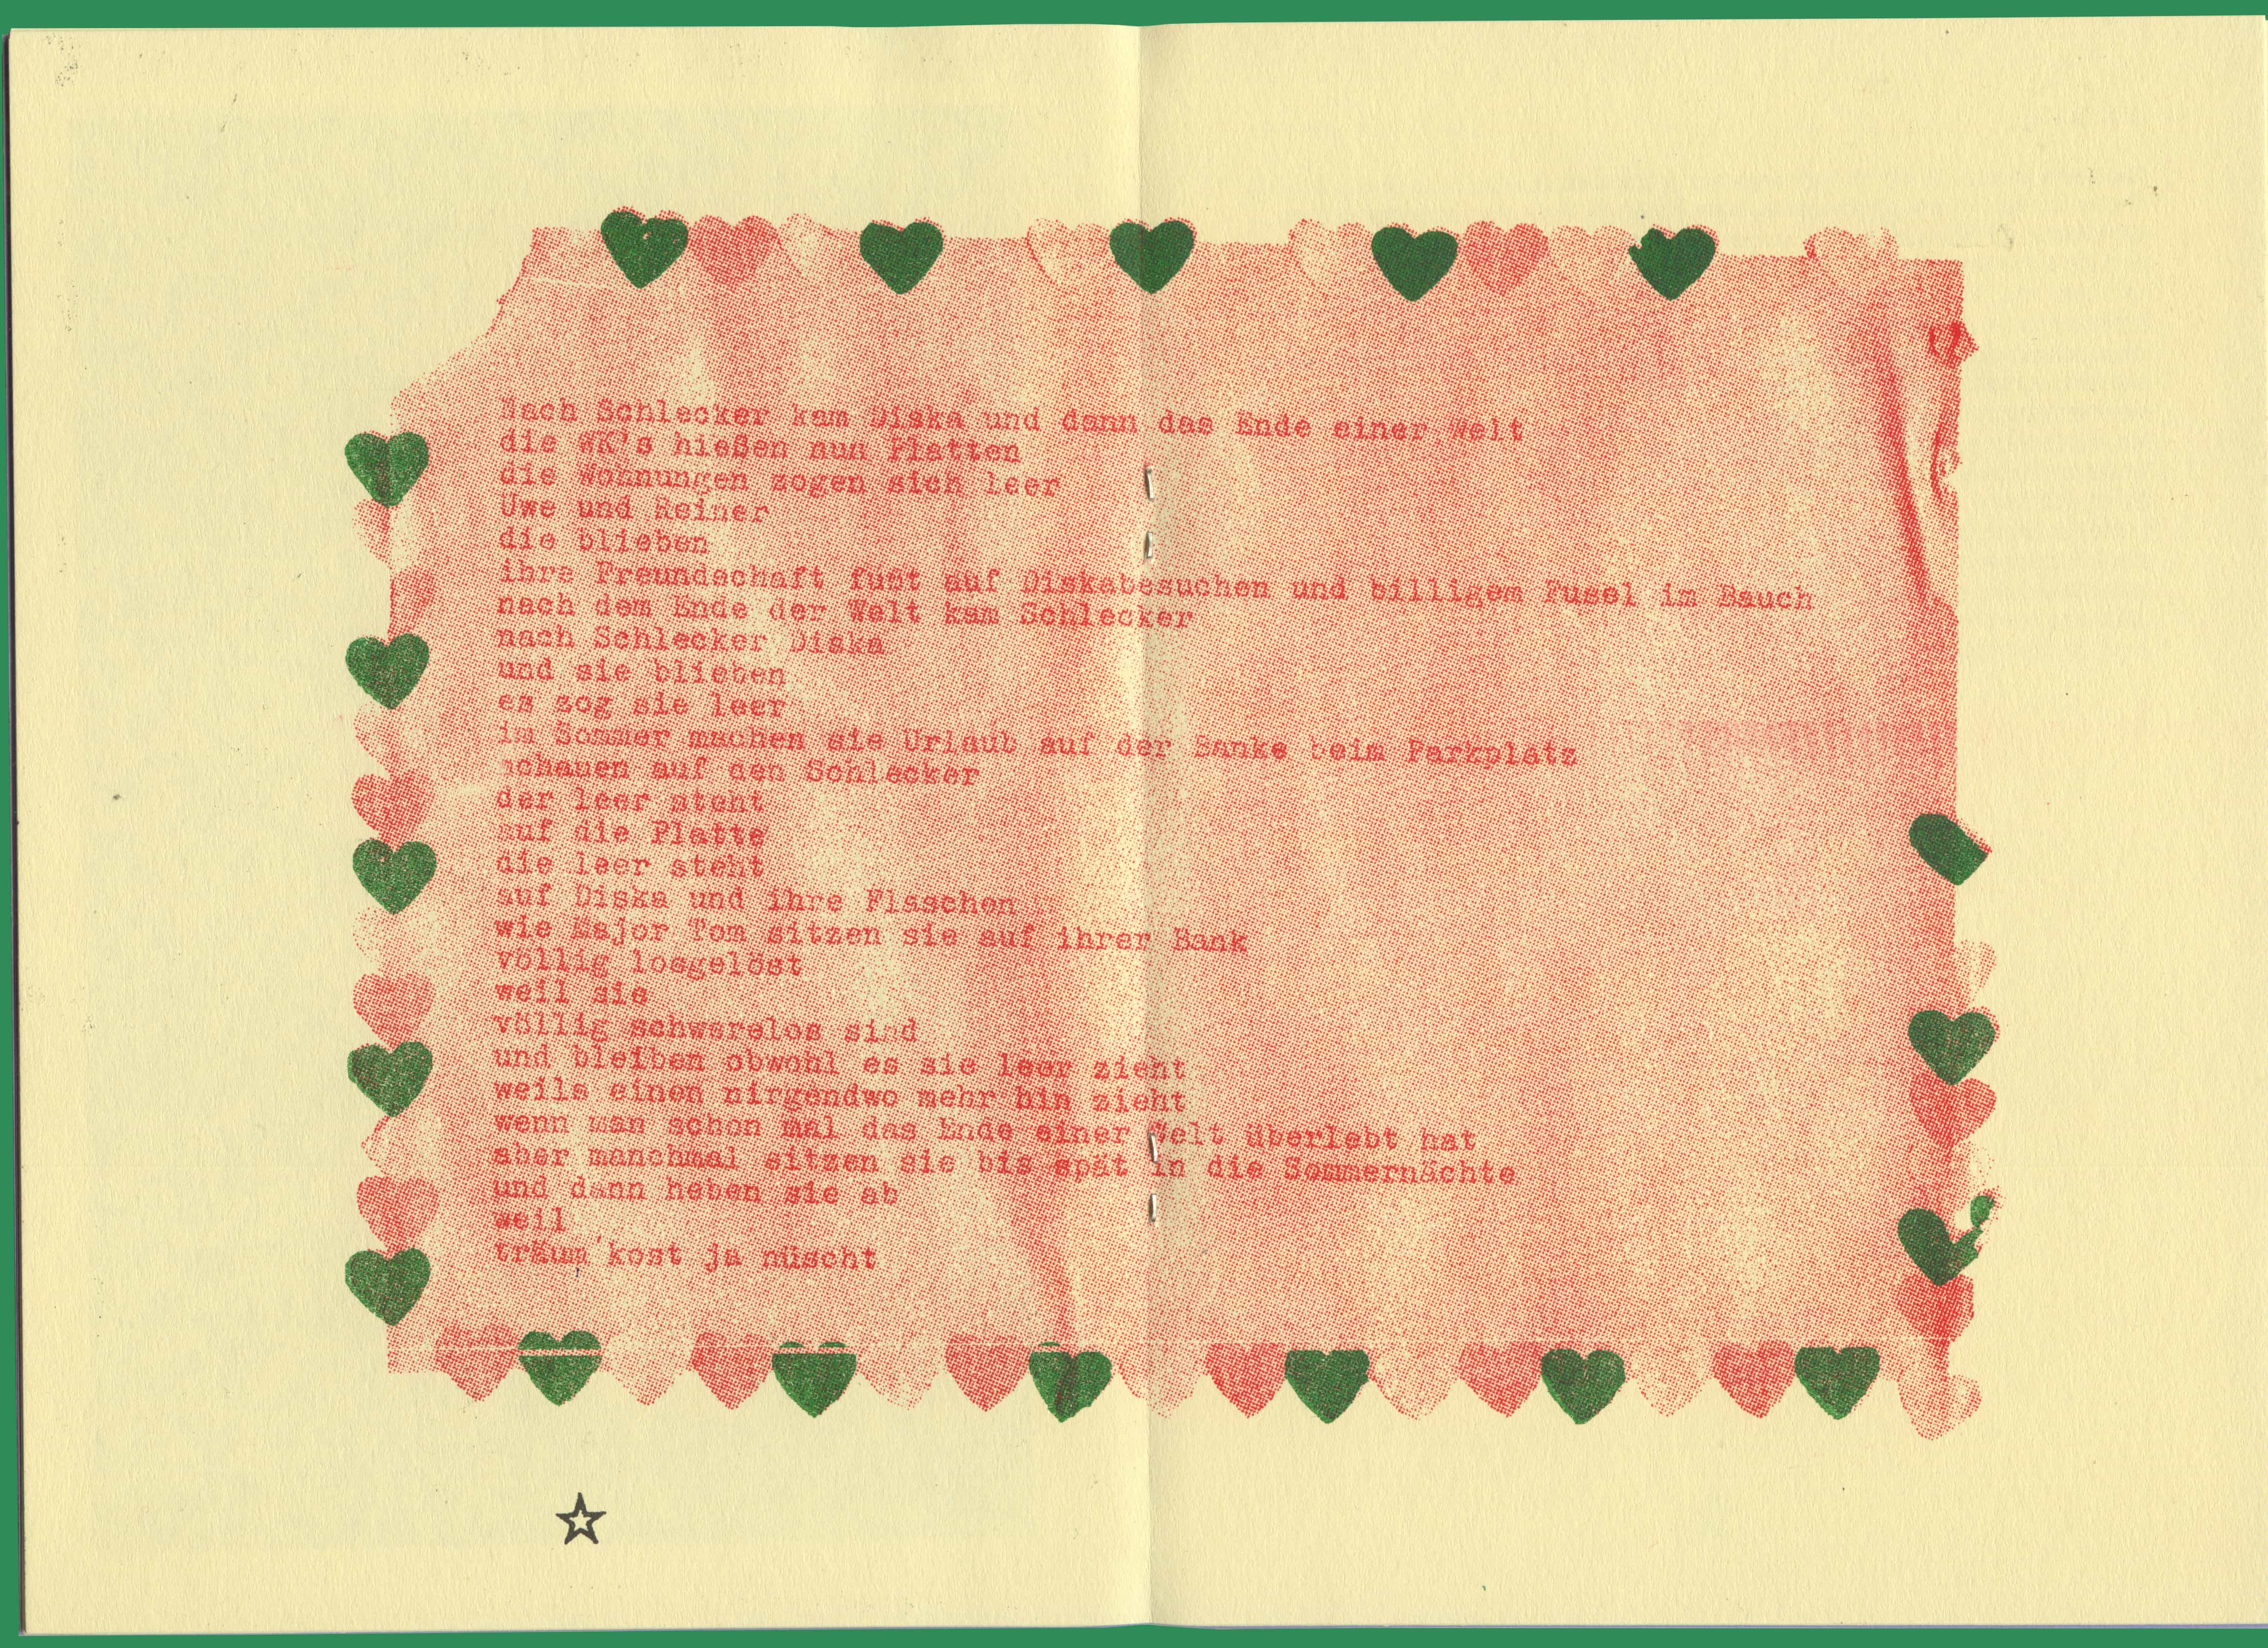 Nach Schlecker kam Diska und dann das Ende einer Welt
die WK's hießen nun Platten
die Wohnungen zogen sich leer
Uwe und Reiner
die blieben
ihre Freundschaft fußt auf Diskabesuchen und billigem Fusel im Bauch
nach dem Ende der Welt kam Schlecker
nach Schlecker Diska
und sie blieben
es zog sie leer
im Sommer machen sie Urlaub auf der Banke beim Parkplatz
schauen auf den Schlecker
der leer steht
auf die Platte
die leer steht
auf Diska und ihre Flaschen
wie Major Tom sitzen sie auf ihrer Bank
völlig losgelöst
weil sie
völlig schwerelos sind
und bleiben obwohl es sie leer zieht
weils einen nirgendwo mehr hin zieht
wenn man schon mal das Ende einer Welt überlebt hat
aber manchmal sitzen sie bis spät in die Sommernächte
und dann heben sie ab
weil
träum'kost ja nüscht